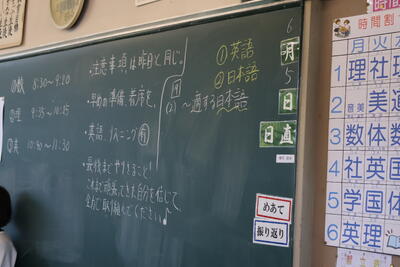 注意事項は昨日と同じ。
①数 8:30〜9:20
②理 9:35〜10:25
③英 10:40〜11:30
・早めの準備、着席を。
・英語、リスニング有
・最後までやりきること!
これまで頑張ってきた自分を信じて
全力で取り組んでください♪
国
(2) 〜適する日本語
①英語
②日本語
6
月
5
日
日直
めあて
振り返り
時間
時間割
月火
1理社
2音美美道
3数体数
4社英国
5学国体
6英理